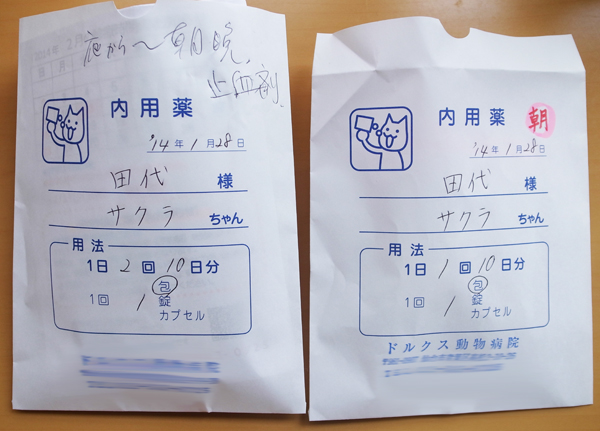 から〜朝晩、
止血剤、
内用薬
'14年1月28日
田代 様
サクラ ちゃん
用法
1日2回10日分
包
1回 1 錠
カプセル
内用薬 朝
'14年1月28日
田代 様
サクラ ちゃん
用法
1日1回10日分
包
1回 1 錠
カプセル
ドルクス動物病院